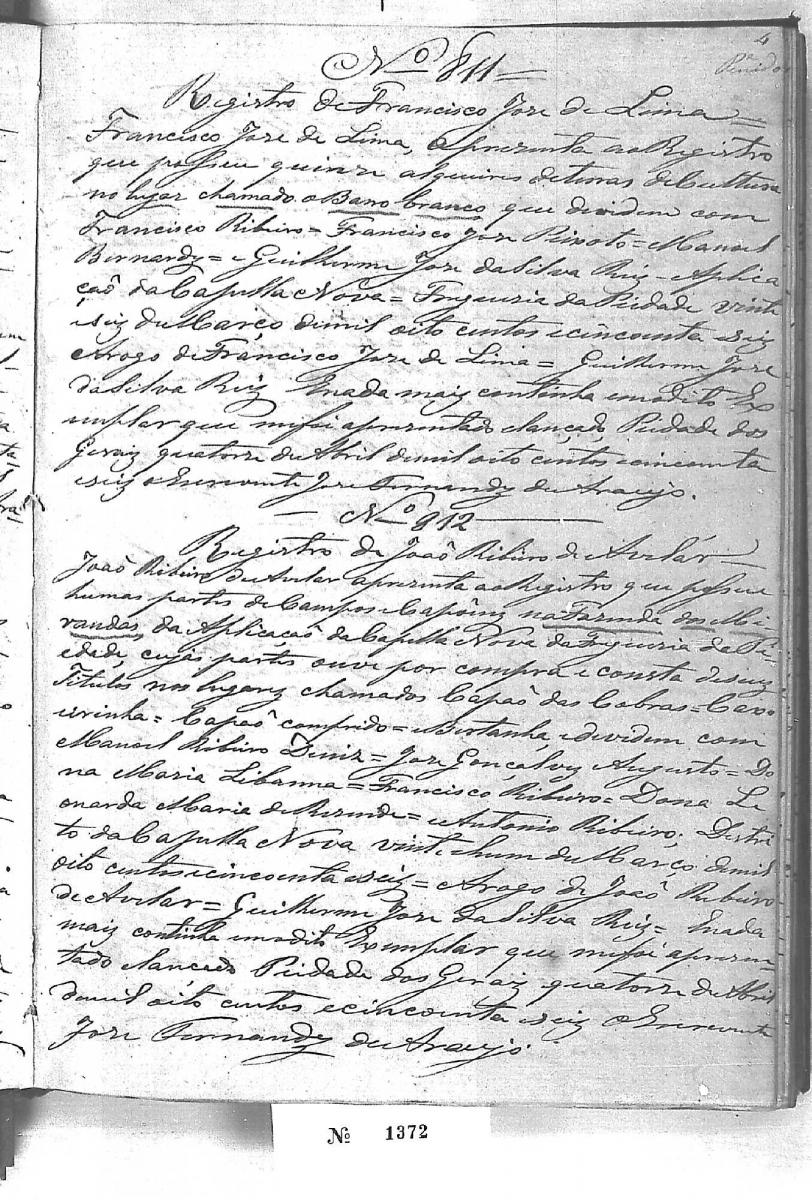 4
Nº 811
Registro de Francisco Jose de Lima =
Francisco Jose de Lima, aprezenta ao Registro
que possue quinze alqueires de terras de Cultura
no lugar chamado o Barro branco que devidem com
Francisco Ribeiro = Francisco Jose Peixoto = Manoel
Bernardz = e Guilherme Jose da Silva Reiz = Aplica
çaõ da Capella Nova = Freguezia da Piedade vinte
e seiz de Março de mil oito centos e cincoenta e seiz
Arogo de Francisco Jose de Lima = Guilherme Jose
da Silva Reiz Enada maiz continha emodito Ex
emplar que mefoi aprezentado elançado, Piedade dos
Geraiz quatorze de Abril de mil oito centos e cincoenta
e seiz o Escrevente Jose Fernandz de Araujo.
Nº 812
Registro de Joaõ Ribeiro de Avelár
Joaõ Ribeiro de Avelar aprezenta ao Registro que possue
humas partes de Campos e Capoens na Fazenda dos Mi
randas da Aplicaçaõ da Capella Nova da Freguezia da Pi-
edade, cujas partes ouve por compra e consta de seuz
Titulos nos lugarez chamados Capaõ das Cobras = Caxo
eirinha = Capaõ comprido = e Bertanha, e devidem com
Manoel Ribeiro Diniz = Jose Gonçalvez Augusto = Do
na Maria Libanna = Francisco Ribeiro = Dona Le
onarda Maria de Rezende = e Antonio Ribeiro, Destri
to da Capella Nova vinte hum de Março de mil
oito centos e cincoenta e seiz = Arogo de Joaõ Ribeiro
de Avelar = Guilherme Jose da Silva Reiz = Enada
maiz continha emodito Exemplar que mefoi aprezen-
tado elançado Piedade dos Geraiz quatorze de Abril
de mil oito centos e cincoenta e seiz o Escrevente
Jose Fernandz de Araujo.
Nº 1372